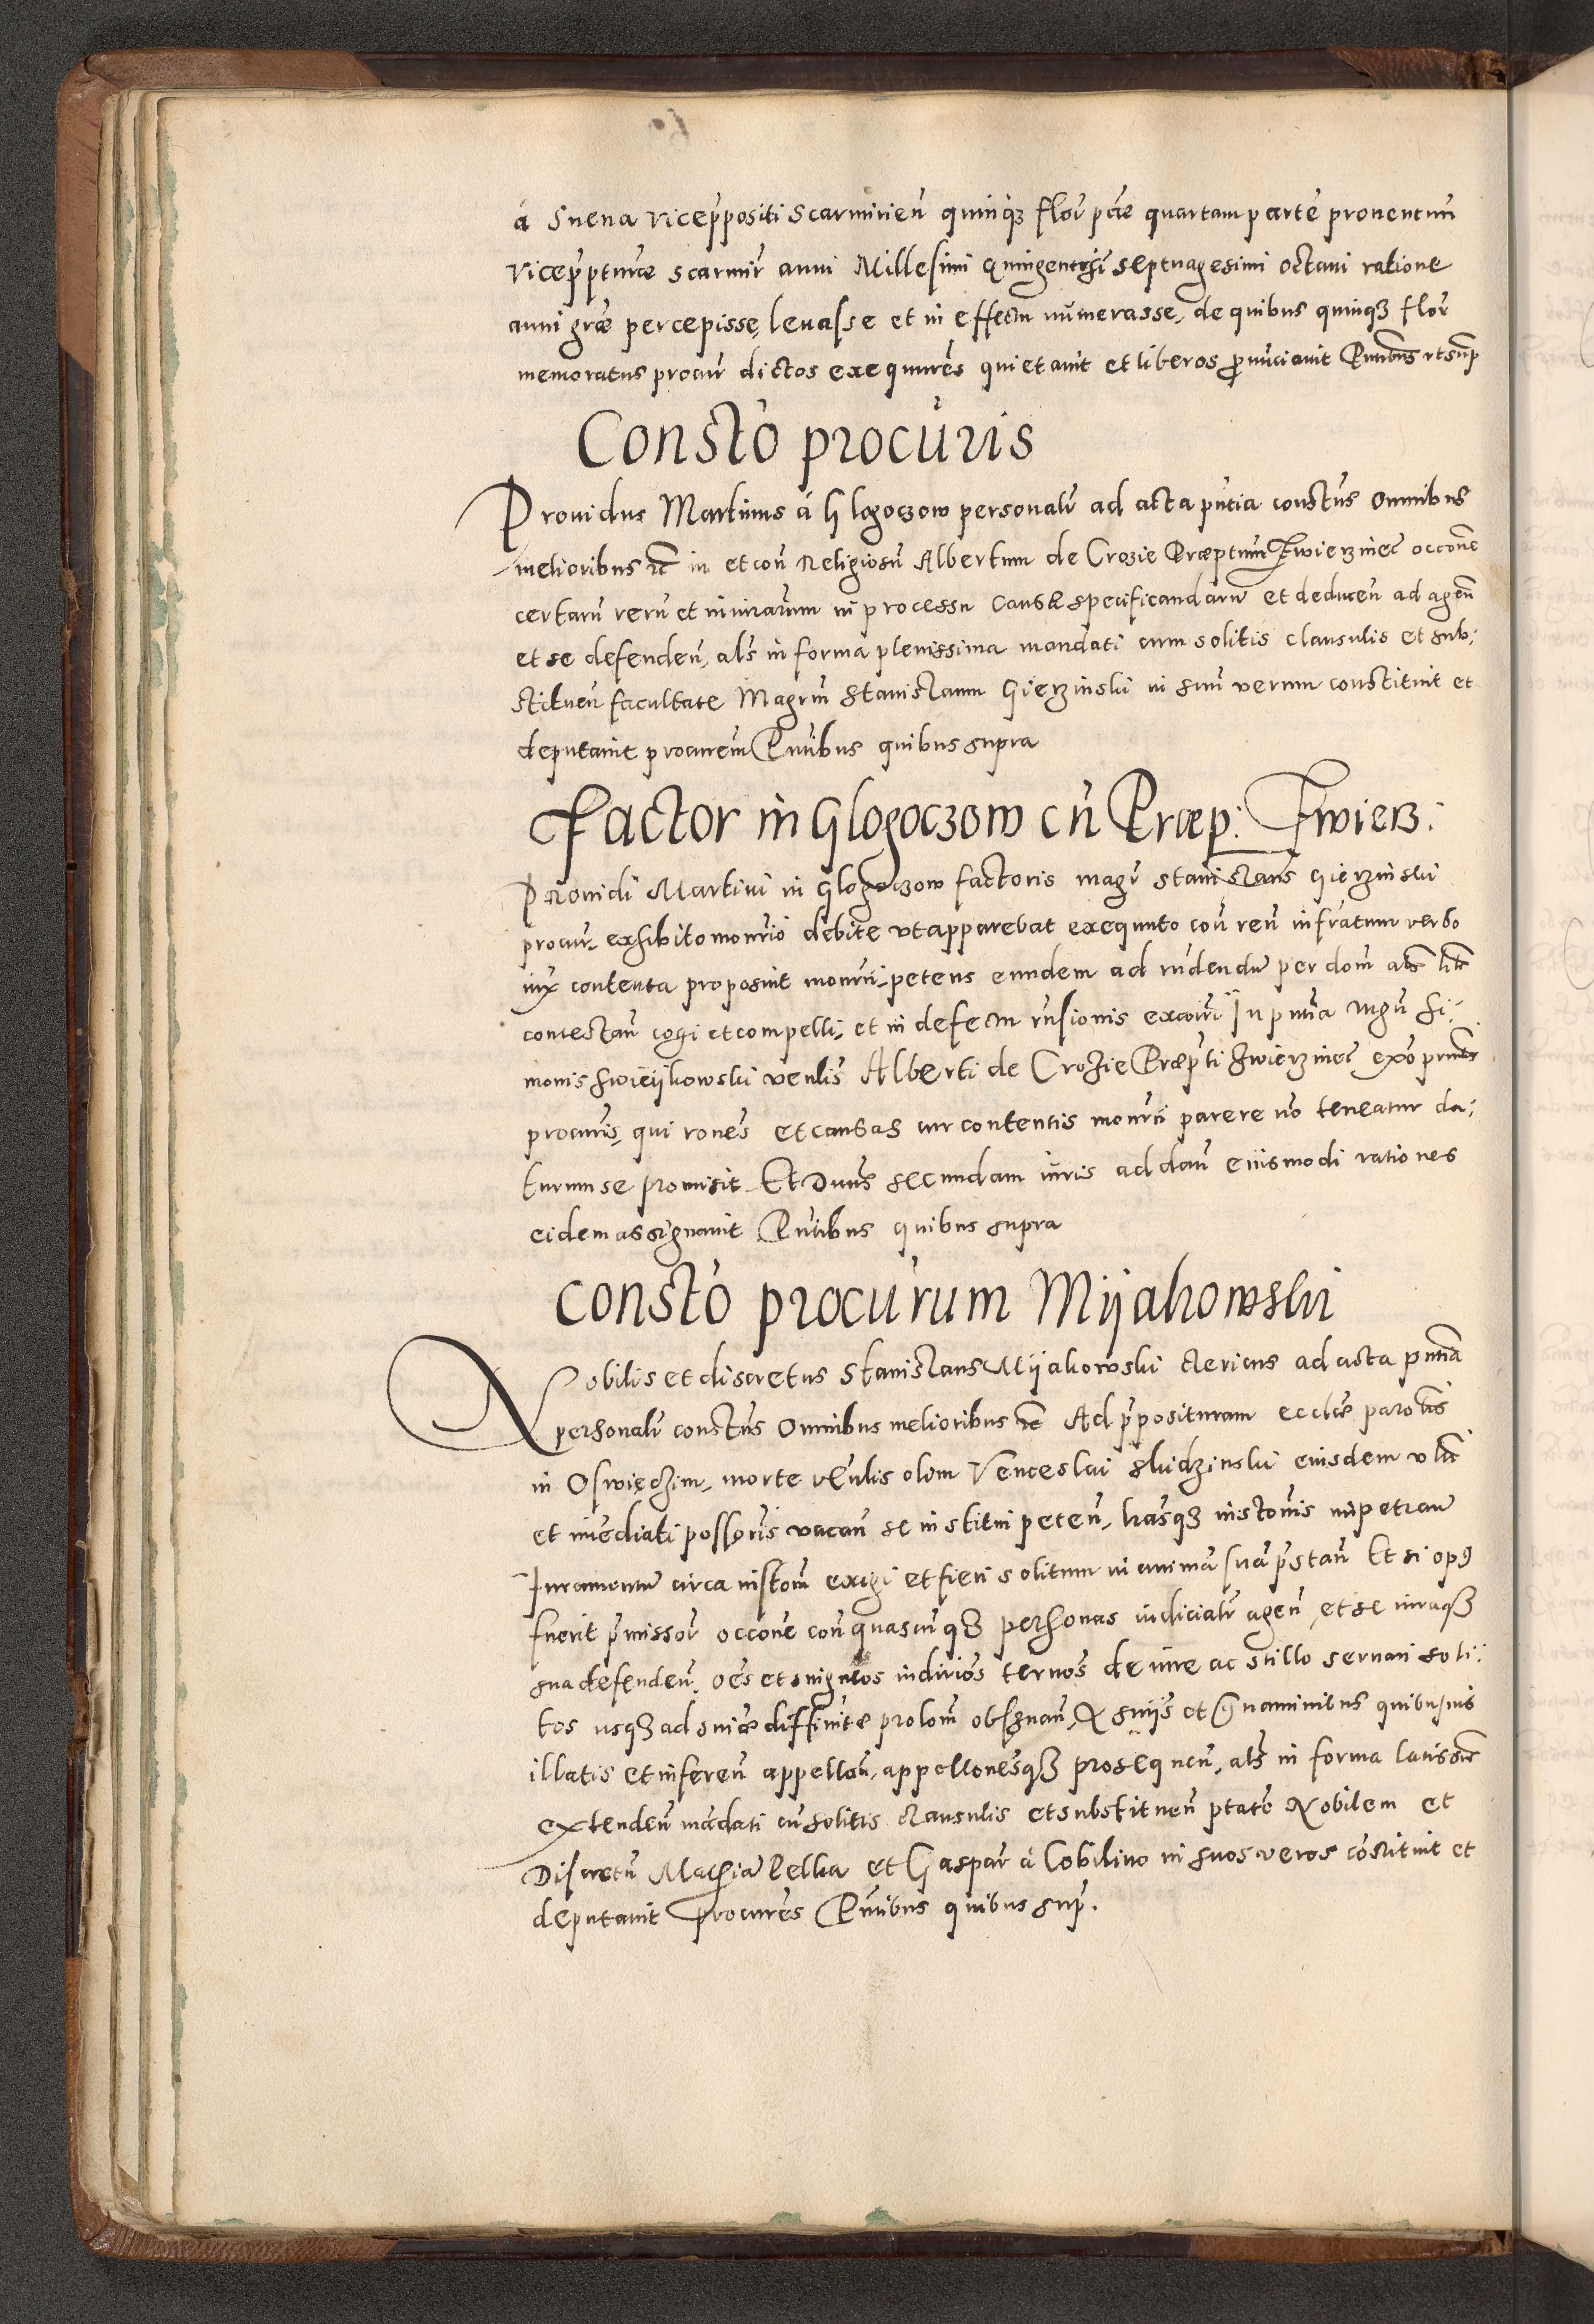 á Snena vicep̃positi Scarmirień quinq̷ flor̃ p̃cæ quartam parte prouentuũ
vicep̃pturæ scarmir̃ anni Millesimi quingentesĩ septuagesimi octaui ratione
anni græ percepisse, leuasse et in effectu numerasse, de quibus quinq̷ flor̃
memoratus procur̃ dictos exequutr̃es quietauit et liberos ꝓnũciauit P̃ntibus vt sup̃
Constõ procũris
Prouidus Martinus á Glogoczow personalr̃ ad acta p̃ntia constt̃us omnibus
melioribus etc̃ in et coñ Religiosũ Albertum de Crozie Præptum Zwierzinec̃ occõne
certarũ rerũ et iniuriarum in processu causæ specificandarũ et deducen̄ ad agen̄
et se defenden̄, al̃s in forma plenissima mandati cum solitis clausulis et sub:
stituen̄ facultate Magr̃m Stanislaum Gierzinski in suũ verum constituit et
deputauit procurem̃ P̃ntibus quibus supra
Factor in Glogoczow cũ Præp: Zwierz:
Prouidi Martini in Glogoczow factoris magr̃ Stanislaus Gierzinski
procur̃, exhibito monr̃io debite vt apparebat exequuto coñ reũ infrãtum verbo
iux̃ contenta proposuit monr̃ii, petens eundem ad rñdendũ per dom̃ al̃s lit̃e
contestañ cogi et compelli, et in defectu rñsionis excõri In p̃ntia Mgr̃i Si:
monis Swieijkowski venlis̃ Alberti de Crozie Præp̃ti Zwierzinec̃ exõ prnt̃is
procur̃is, qui rõnes et causas cur contentis monr̃ii parere nõ teneatur da:
turum se promisit Et Dnus̃ secundam iur̃is ad dan̄ eiusmodi rationes
eidem assignauit P̃ntibus quibus supra
Constõ procũrum Mijakowski
Nobilis et discretus Stanislaus Mijakowski clericus ad acta p̃ntia
personalr̃ constt̃us Omnibus melioribus etc̃ Ad p̃posituram eccl̃iæ parõlis
in Oswięczim, morte vẽnlis olim Venceslai Skidzinski eiusdem vlt̃
et imẽdiati possor̃is vacan̄ se institui peten̄, lr̃asq̷ instõnis impetran̄
Juramentũ circa instõem̃ exigi et fieri solitum in animã suã p̃stan̄ Et si opꝰ
fuerit p̃missor̃ occõne coñ quascunq̷ personas iudicialr̃ agen̄, et se iuraq̷
sua defenden̄, oẽs et singulos iudirios̃ term̃os de iure ac stillo seruari soli:
tos usq̷ ad snĩæ diffinitæ prolom̃ obseruan̄, A snĩjs et grauaminibus quibusuis
illatis et inferen̄ appellan̄, appellonesq̷̃ prosequen̄, al̃s in forma latissim̃e
extenden̄ mãdati cũ solitis clausulis et substituen̄ p̃tate Nobilem et
Discretũ Mathiã Pelka et Gaspar̃ á Cobilino in suos veros cõstituit et
deputauit procur̃es P̃ntibus quibus sup̃.